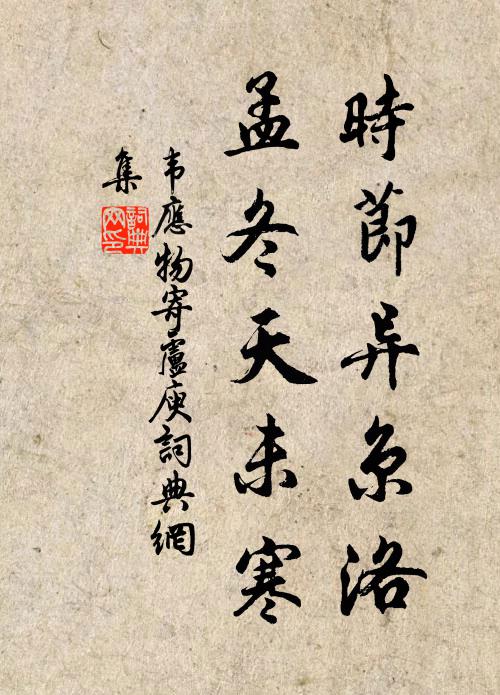 時節异京洛
孟冬天未寒
韦應物寄盧庾詞典網
集
詞典网印